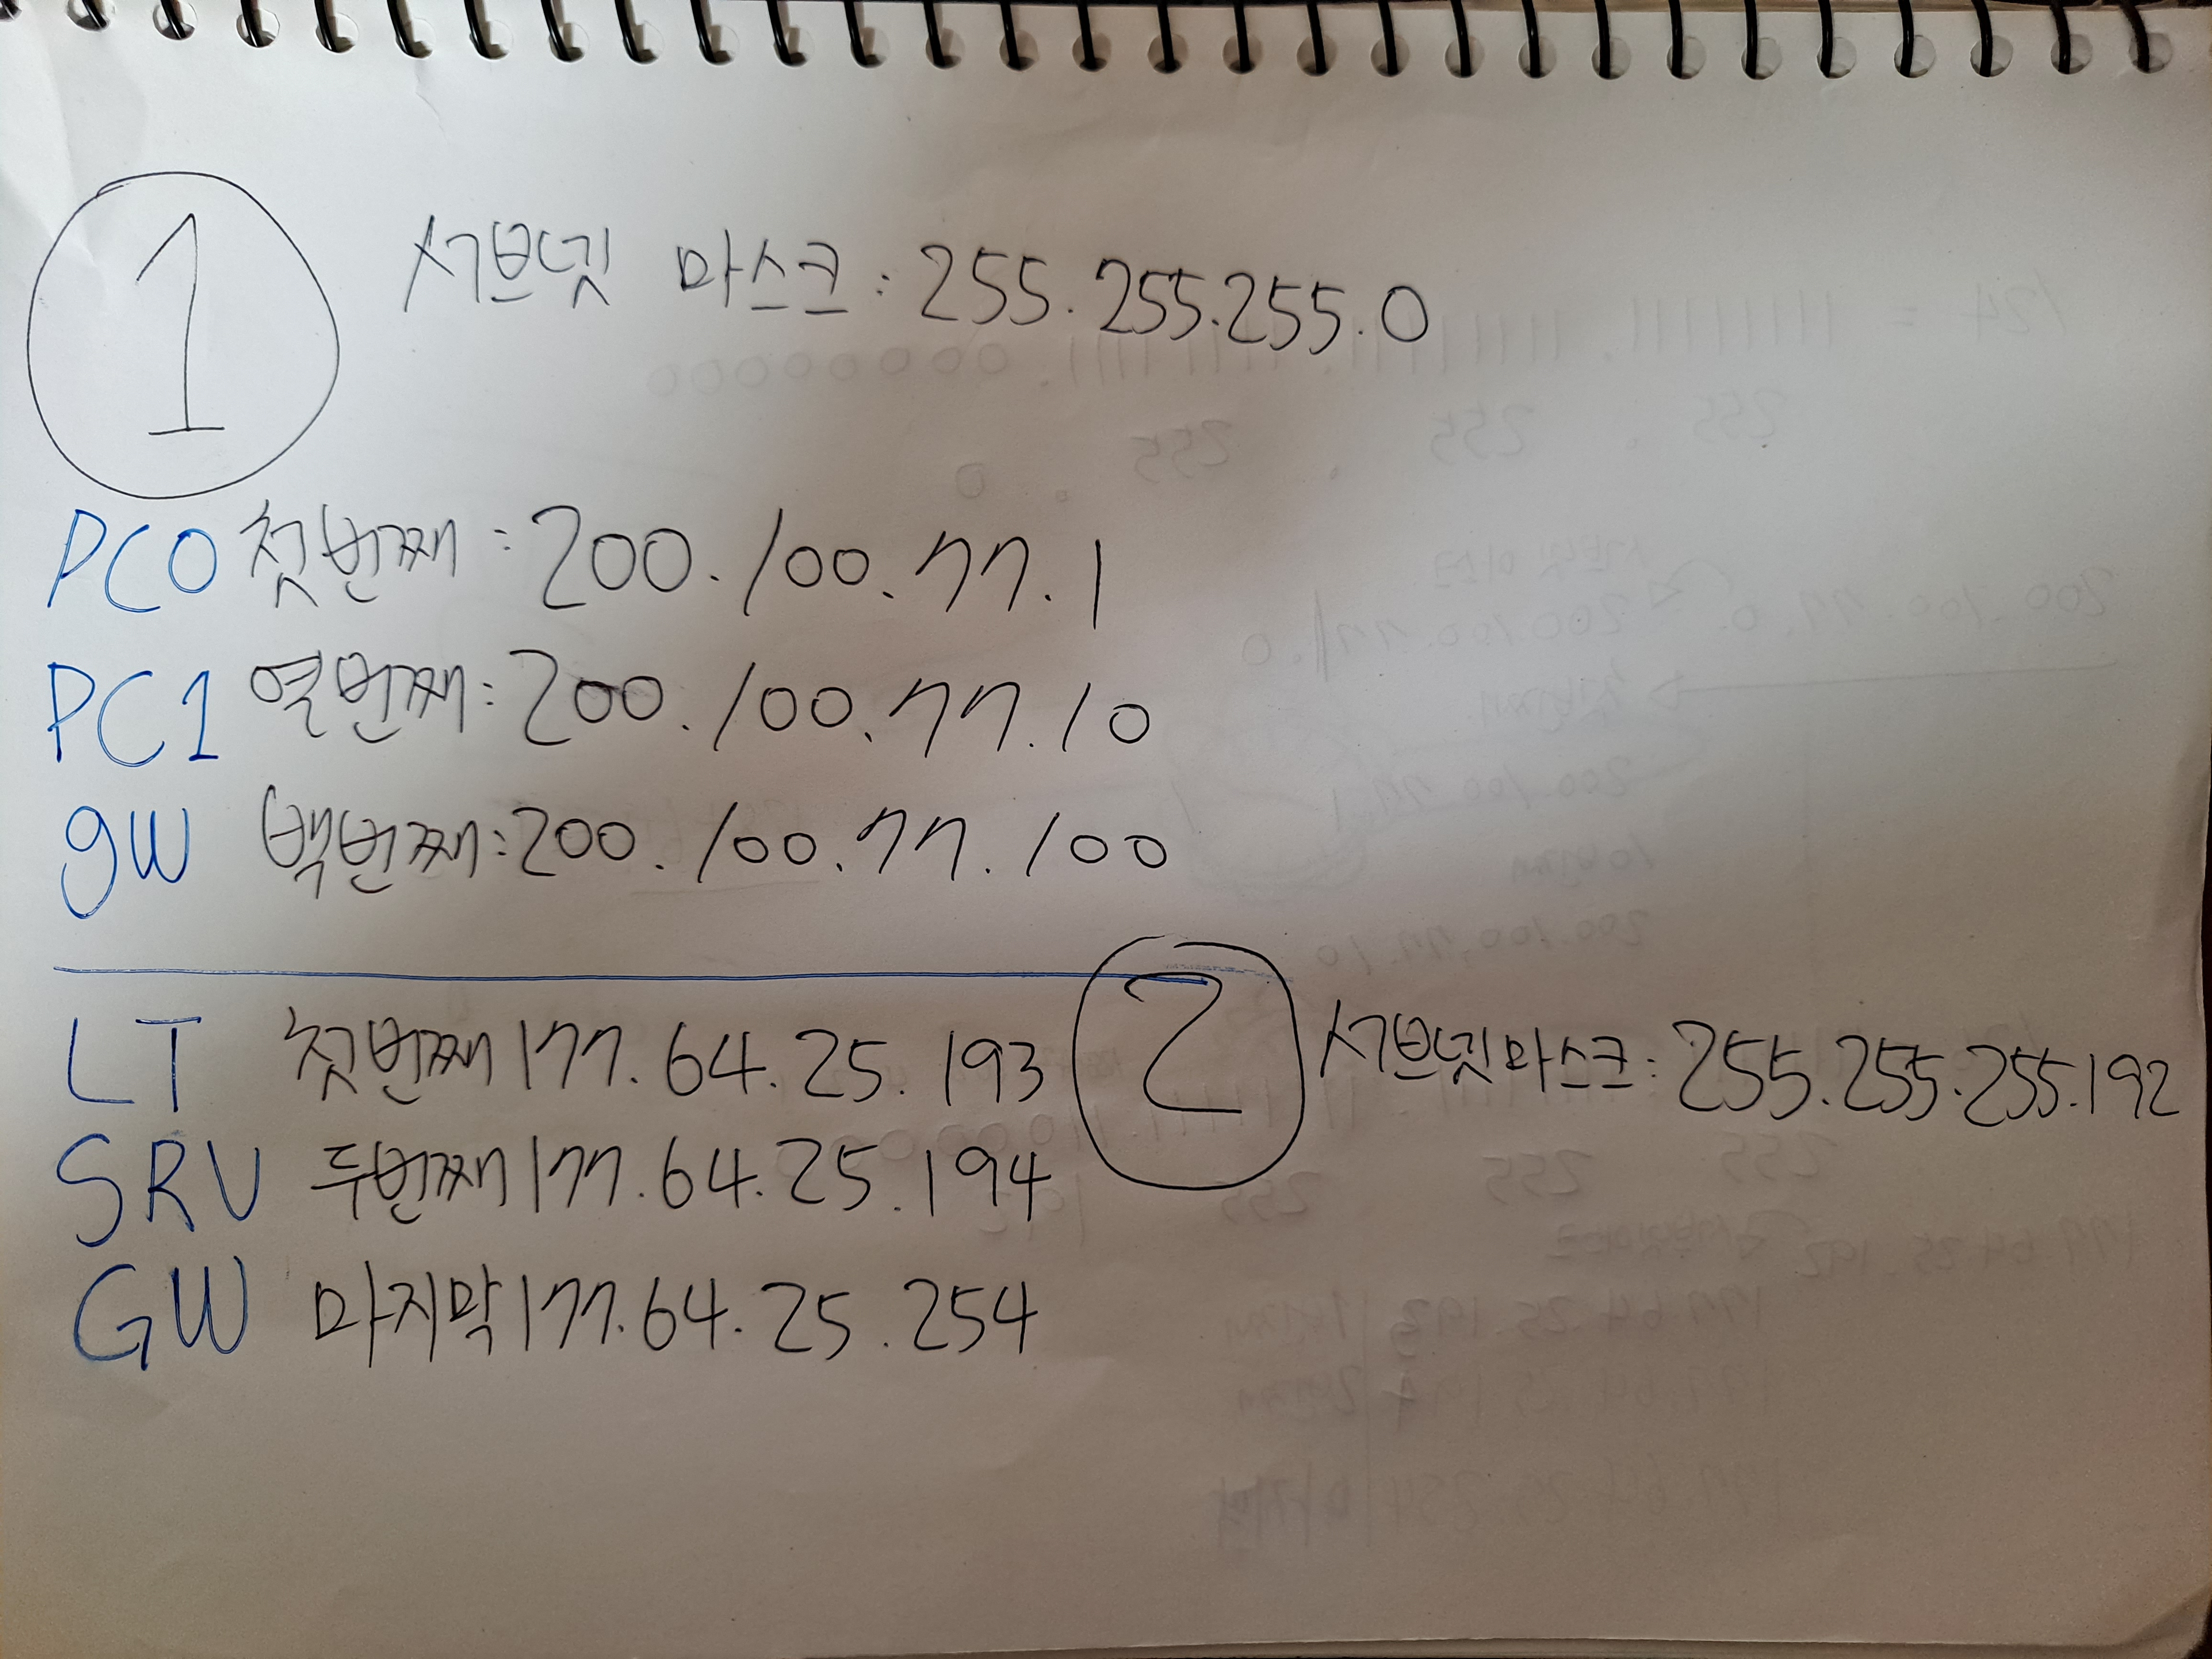 1
서브넷 마스크 : 255.255.255.0
PC0 첫번째 : 200.100.77.1
PC1 열번째 : 200.100.77.10
gW 백번째 : 200.100.77.100
2
서브넷마스크 : 255.255.255.192
LT 첫번째 177.64.25.193
SRV 두번째 177.64.25.194
GW 마지막 177.64.25.254